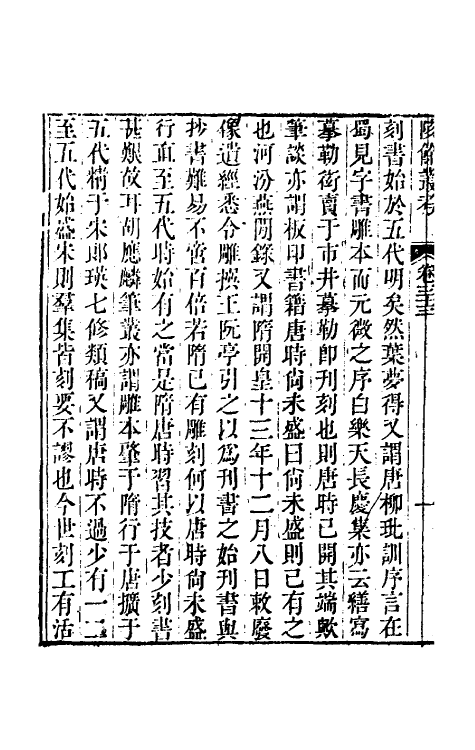 陔餘叢考　卷三十三　十
刻書始於五代明矣然葉夢得又謂唐柳玭訓序言在
蜀見字書雕本而元微之序白樂天長慶集亦云繕寫
摹勒衒賣于市井摹勒卽刊刻也則唐時已開其端歟
筆談亦謂板印書籍唐時尙未盛曰尙未盛則已有之
也河汾燕閒錄又謂隋開皇十三年十二月八日敕廢
像遺經悉令雕撰王阮亭引之以爲刊書之始刊書與
抄書難易不啻百倍若隋已有雕刻何以唐時尙未盛
行直至五代時始有之當是隋唐時習其技者少刻書
甚艱故耳胡應麟筆叢亦謂雕本肇于隋行于唐擴于
五代精于宋郎瑛七修類稿又謂唐時不過少有一二
至五代始盛宋則羣集皆刻要不謬也今世刻工有活